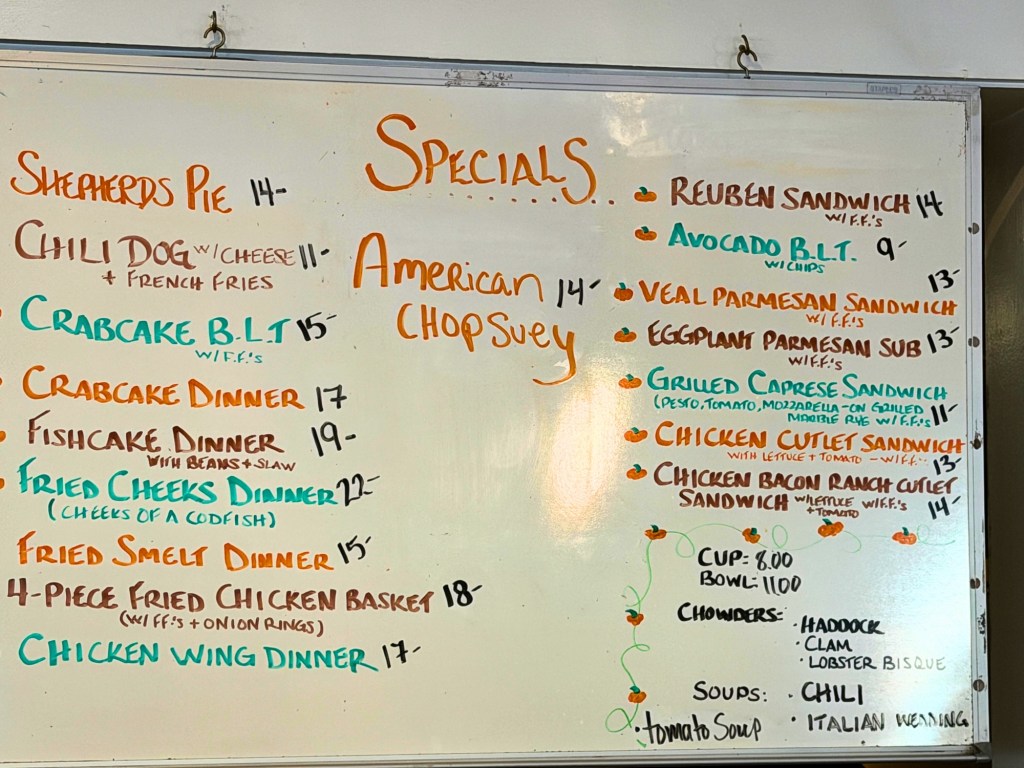 SPECIALS
SHEPHERDS PIE 14-
CHILI DOG W/CHEESE 11-
+ FRENCH FRIES
CRABCAKE B.L.T 15-
W/F.F.'s
CRABCAKE DINNER 17
FISHCAKE DINNER 19-
WITH BEANS + SLAW
FRIED CHEEKS DINNER 22-
(CHEEKS OF A CODFISH)
FRIED SMELT DINNER 15-
4-PIECE FRIED CHICKEN BASKET 18-
(W/FF's + ONION RINGS)
CHICKEN WING DINNER 17-
American 14-
CHOPSuey
REUBEN SANDWICH 14
W/F.F.'s
AVOCADO B.L.T. 9-
W/CHIPS
13-
VEAL PARMESAN SANDWICH
W/F.F.'s
EGGPLANT PARMESAN SUB 13-
W/F.F.'s
GRILLED CAPRESE SANDWICH
(PESTO, TOMATO, MOZZARELLA-ON GRILLED
MARBLE RYE W/F.F.'s 11-
CHICKEN CUTLET SANDWICH
WITH LETTUCE + TOMATO - W/F.F.
13-
CHICKEN BACON RANCH CUTLET
SANDWICH W/LETTUCE W/F.F.'s 14-
+ TOMATO
CUP: 8.00
BOWL: 11.00
CHOWDERS:
· HADDOCK
· CLAM
· LOBSTER BISQUE
SOUPS: · CHILI
· tomato Soup · ITALIAN WEDDING